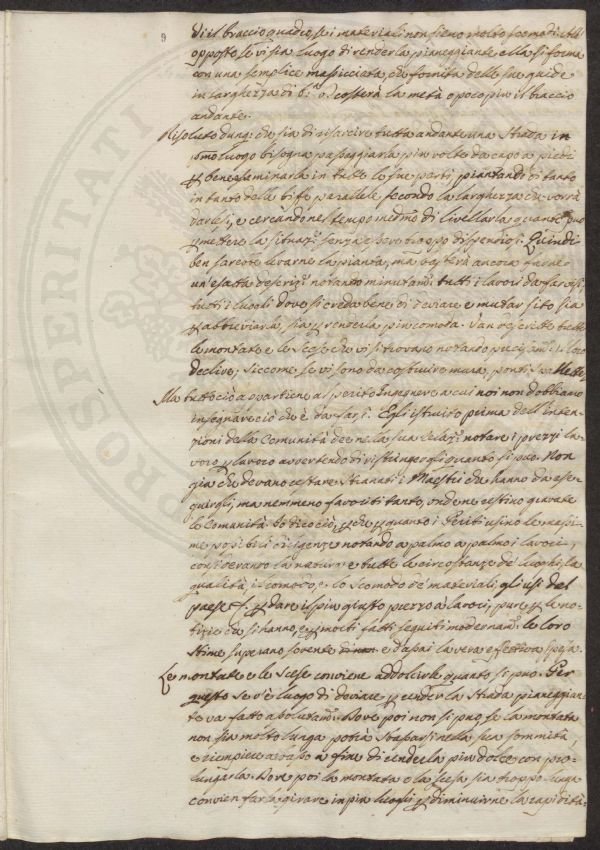 9
di il braccio quadro, se i materiali non sieno molto scomodi. All'
opposto se vi sia luogo di renderla pianeggiante ella si forma
con una semplice massicciata, che fornita delle sue guide
in larghezza di b.ª 6. costerà la metà o poco più il braccio
andante.
Risoluto dunq; che sia di risarcire tutta andante una Strada in
p.mo luogo bisogna passeggiarla più volte da capo a piedi
e bene esaminarla in tutte le sue parti, piantando di tanto
in tanto delle biffe parallele secondo la larghezza che vorrà
darlesi, e cercando nel tempo medmo di livellarla quanto può
permettere la situaz.e senza esser troppo dispendiosi. Quindi
ben sarebbe levarne la pianta, ma basterà ancora farne
un'esatta descriz.e notando minutam.e tutti i lavori da farvisi
tutti i luoghi dove si creda bene di deviare e mutar sito sia
p abbreviarla, sia p renderla più comoda. Van descritte tutte
le montate e le scese che vi si trovano notando precisam.e il loro
declive, siccome se vi sono da costruire mura, ponti
Ma tutto ciò appartiene al perito Ingegnere a cui noi non dobbiamo
insegnare ciò che è da farsi. Egli istruito prima dell'Inten-
zioni della Comunità dee nella sua Relaz.e notare i prezzi la-
voro p lavoro avvertendo di ristringergli quanto si può. Non
già che devano restare straziati i Maestri che hanno da ese-
guirgli, ma nemmeno favoriti tanto, onde ne restino gravate
le Comunità. Io dico ciò, pchè p quanto i Periti usino le massi-
me possibili diligenze notando a palmo a palmo i lavori,
considerando la natura e tutte le circostanze de' luoghi, la
qualità, il comodo, e lo scomodo de' materiali gli usi del
paese &. p dare il più giusto prezzo a' lavori, pure p le no-
tizie che si hanno, e p molti fatti seguiti modernam.e le loro
stime superano sovente e d'assai la vera effettiva spesa.
Le montate e le scese conviene addolcirle quanto si può. Per
questo se v'è luogo di deviare p render la Strada pianeggian-
te va fatto absolutam.e Dove poi non si può, se la montata
non sia molto lunga potrà sbassarsi nella sua sommità,
e riempiere a basso a fine di renderla più dolce con pro-
lungarla. Dove poi la montata e la scesa sia troppo lunga
convien farla girare in più luoghi p diminuirne la rapidità.
PROSPERITATI